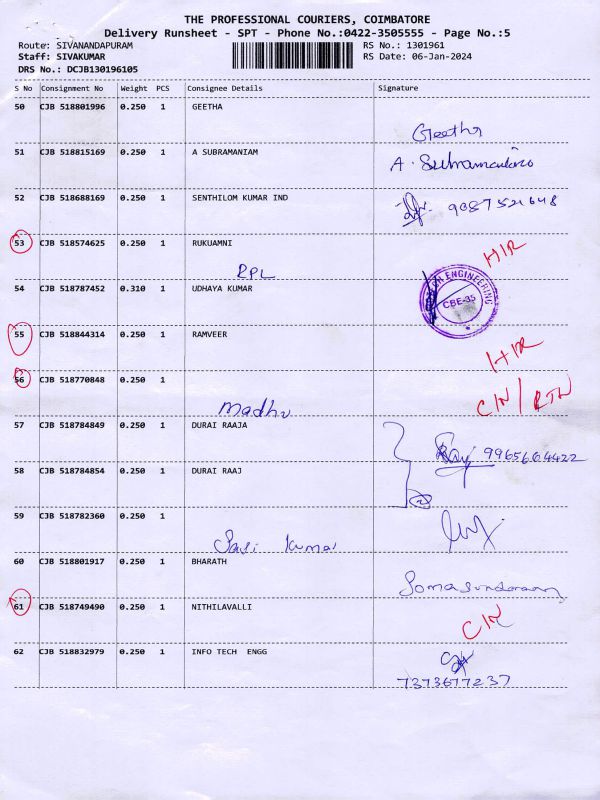 THE PROFESSIONAL COURIERS, COIMBATORE
Delivery Runsheet - SPT - Phone No.:0422-3505555 - Page No.:5
Route: SIVANANDAPURAM RS No.: 1301961
Staff: SIVAKUMAR RS Date: 06-Jan-2024
DRS No.: DCJB130196105
S No Consignment No Weight PCS Consignee Details Signature
50 CJB 518801996 0.250 1 GEETHA
Geetha
51 CJB 518815169 0.250 1 A SUBRAMANIAM
A. Subramaniam
52 CJB 518688169 0.250 1 SENTHILOM KUMAR IND
9087521648
53 CJB 518574625 0.250 1 RUKUAMNI
H/R
RPL
54 CJB 518787452 0.310 1 UDHAYA KUMAR
ENGINEERING
CBE-35
55 CJB 518844314 0.250 1 RAMVEER
H/R
56 CJB 518770848 0.250 1
Madhu
C/N / RTN
57 CJB 518784849 0.250 1 DURAI RAAJA
Raj 9965664422
58 CJB 518784854 0.250 1 DURAI RAAJ
59 CJB 518782360 0.250 1
Sasi kumar
60 CJB 518801917 0.250 1 BHARATH
Somasundaram
61 CJB 518749490 0.250 1 NITHILAVALLI
C/N
62 CJB 518832979 0.250 1 INFO TECH ENGG
7373677237